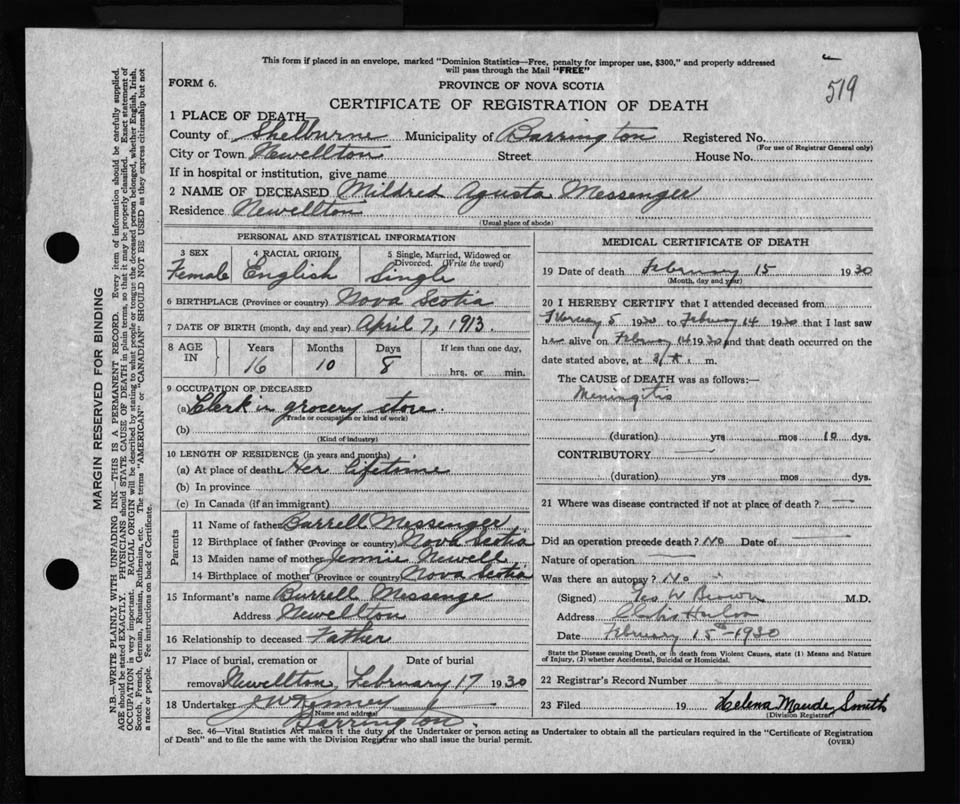 This form if placed in an envelope, marked "Dominion Statistics—Free, penalty for improper use, $300," and properly addressed
will pass through the Mail "FREE"
519
FORM 6.
PROVINCE OF NOVA SCOTIA
CERTIFICATE OF REGISTRATION OF DEATH
1 PLACE OF DEATH
County of Shelburne Municipality of Barrington Registered No.
(For use of Registrar General only)
City or Town Newellton Street House No.
If in hospital or institution, give name
2 NAME OF DECEASED Mildred Agusta Messenger
Residence Newellton
(Usual place of abode)
PERSONAL AND STATISTICAL INFORMATION
3 SEX 4 RACIAL ORIGIN 5 Single, Married, Widowed or
Divorced. (Write the word)
Female English Single
6 BIRTHPLACE (Province or country) Nova Scotia
7 DATE OF BIRTH (month, day and year) April 7, 1913.
8 AGE IN Years Months Days If less than one day,
16 10 8 hrs. or min.
9 OCCUPATION OF DECEASED
(a) Clerk in grocery store.
(Trade or occupation or kind of work)
(b)
(Kind of industry)
10 LENGTH OF RESIDENCE (in years and months)
(a) At place of death Her lifetime
(b) In province
(c) In Canada (if an immigrant)
Parents
11 Name of father Barrell Messenger
12 Birthplace of father (Province or country) Nova Scotia
13 Maiden name of mother Jennie Newell
14 Birthplace of mother (Province or country) Nova Scotia
15 Informant's name Burrell Messenge
Address Newellton
16 Relationship to deceased Father
17 Place of burial, cremation or Date of burial
removal Newellton February 17 1930
18 Undertaker J W Kenney
(Name and address)
Barrington.
MEDICAL CERTIFICATE OF DEATH
19 Date of death February 15 1930
(Month, day and year)
20 I HEREBY CERTIFY that I attended deceased from
5 1930 to February 14 1930 that I last saw
her alive on February 14 1930 and that death occurred on the
date stated above, at m.
The CAUSE of DEATH was as follows:—
Meningitis
(duration) yrs mos 10 dys.
CONTRIBUTORY
(duration) yrs mos dys.
21 Where was disease contracted if not at place of death?
Did an operation precede death? No Date of
Nature of operation
Was there an autopsy? No
(Signed) Geo W Brown M.D.
Address Clarks Harbor
Date February 15th 1930
State the Disease causing Death, or in death from Violent Causes, state (1) Means and Nature
of Injury, (2) whether Accidental, Suicidal or Homicidal.
22 Registrar's Record Number
23 Filed 19 Helena Maude Smith
(Division Registrar)
Sec. 46—Vital Statistics Act makes it the duty of the Undertaker or person acting as Undertaker to obtain all the particulars required in the "Certificate of Registration
of Death" and to file the same with the Division Registrar who shall issue the burial permit.
(OVER)
MARGIN RESERVED FOR BINDING
N.B.—WRITE PLAINLY WITH UNFADING INK—THIS IS A PERMANENT RECORD. Every item of information should be carefully supplied.
AGE should be stated EXACTLY. PHYSICIANS should STATE CAUSE OF DEATH in plain terms, so that it may be properly classified. Exact statement of
OCCUPATION is very important. RACIAL ORIGIN will be described by stating to what people or tongue the deceased person belonged, whether English, Irish,
Scotch, French, German, Russian, Ruthenian, etc. The terms "AMERICAN" or "CANADIAN" SHOULD NOT BE USED as they express citizenship but not
a race or people. Fee instructions on back of Certificate.